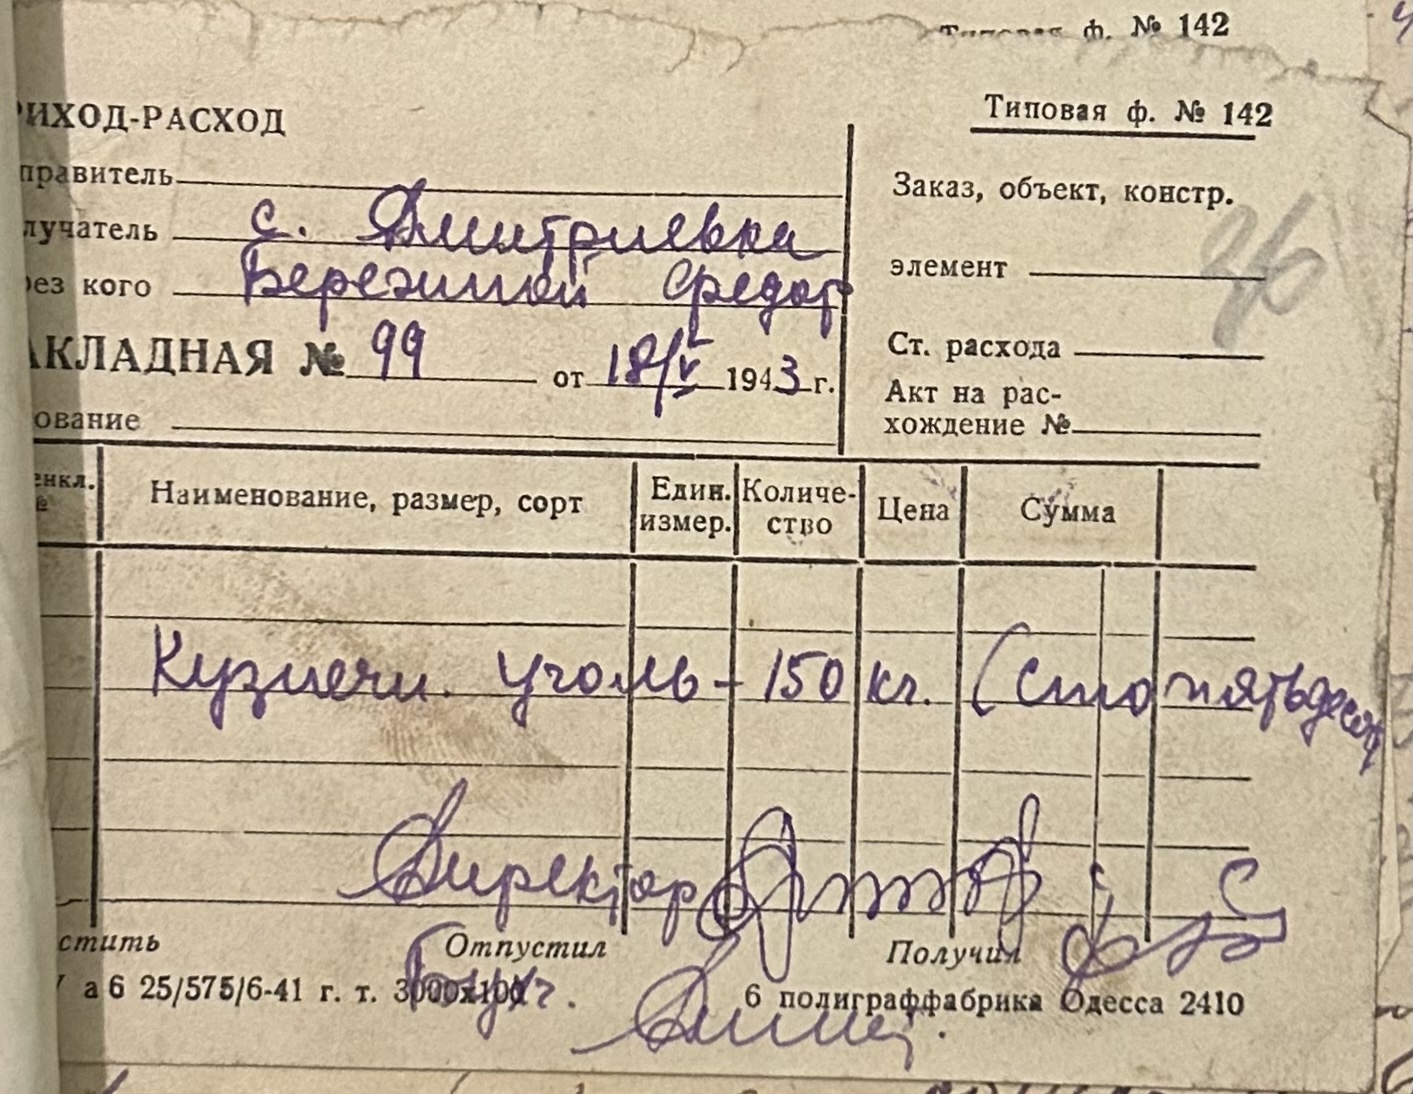 ф. № 142
ИХОД-РАСХОД
Типовая ф. № 142
правитель
Заказ, объект, констр.
лучатель с. Дмитриевка
элемент
рез кого Бережной Федор
АКЛАДНАЯ № 99 от 18/V 1943 г.
Ст. расхода
Акт на рас-
хождение №
ование
енкл. № Наименование, размер, сорт Един. измер. Количе-ство Цена Сумма
Кузнечн. уголь - 150 кг. (сто пятьдесят
Директор
стить Отпустил Получил
Бухг.
а6 25/575/6-41 г. т. 3000х100 6 полиграффабрика Одесса 2410